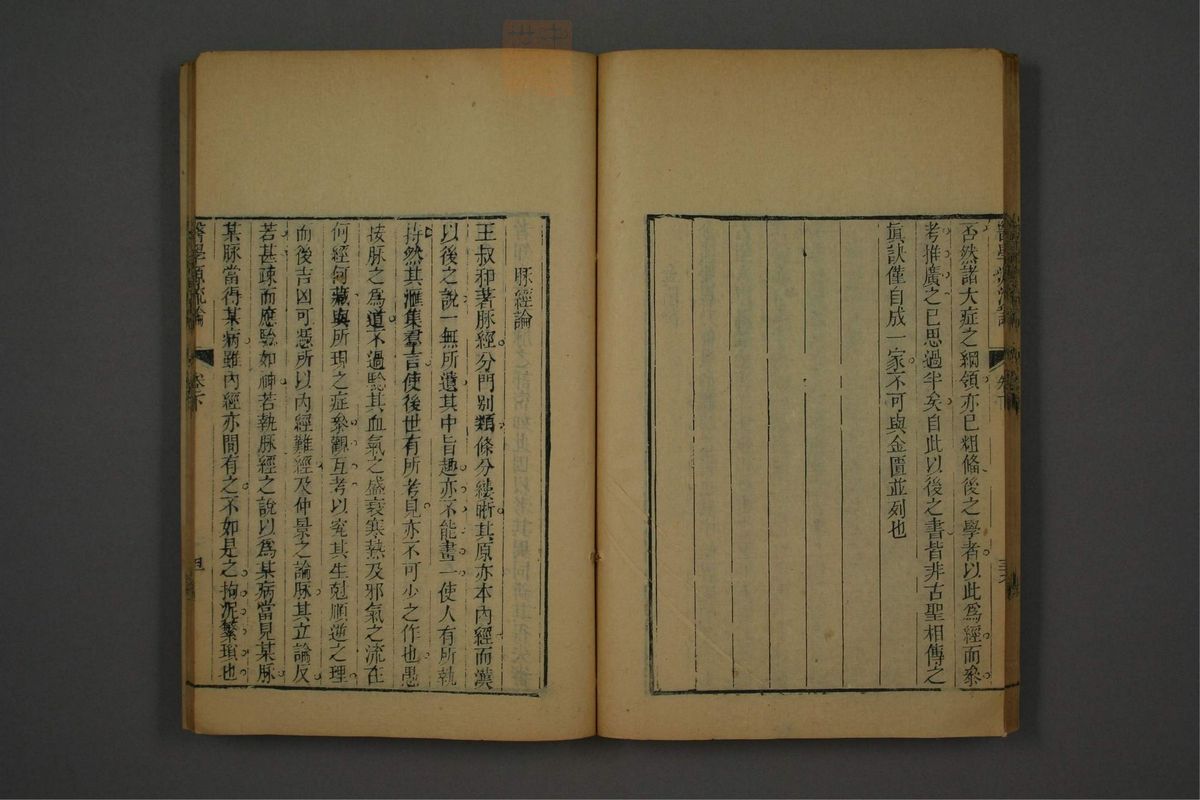 否然諸大症之綱領亦已粗備後之學者以此爲經而參
考推廣之已思過半矣自此以後之書皆非古聖相傳之
眞訣僅自成一家不可與金匱並列也
脉經論
王叔和著脉經分門別類條分縷晰其原亦本內經而漢
以後之說一無所遺其中旨趣亦不能畫一使人有所執
持然其滙集羣言使後世有所考見亦不可少之作也愚
按脉之爲道不過驗其血氣之盛衰寒熱及邪氣之流在
何經何藏與所現之症參觀互考以究其生尅順逆之理
而後吉凶可憑所以內經難經及仲景之論脉其立論反
若甚疎而應驗如神若執脉經之說以爲某病當見某脉
某脉當得某病雖內經亦間有之不如是之拘泥繁瑣也
醫學源流論
卷下